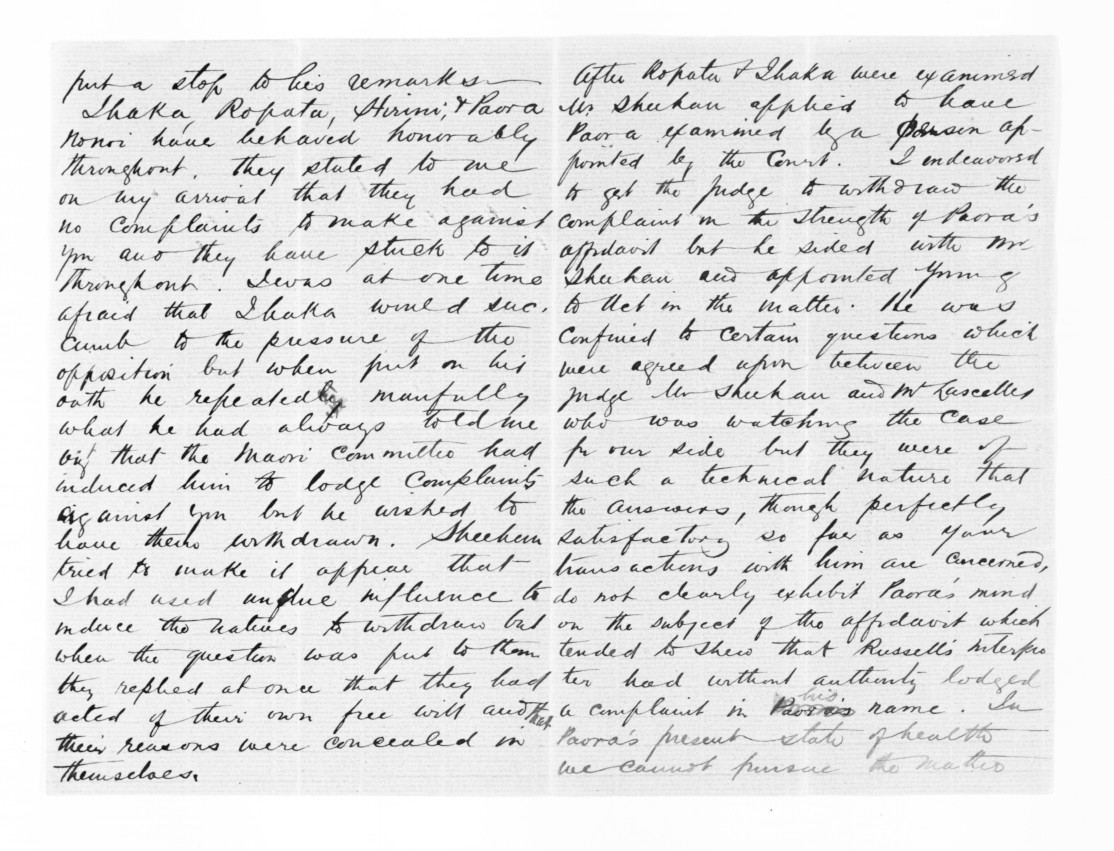 put a stop to his remarks
Ihaka, Ropata, Hirini, & Paora
Nonoi have behaved honorably
throughout. they stated to me
on my arrival that they had
no complaints to make against
you and they have stuck to it
throughout. I was at one time
afraid that Ihaka would suc-
cumb to the pressure of the
opposition but when put on his
oath he repeated manfully
what he had always told me
viz that the Maori Committee had
induced him to lodge Complaints
against you but he wished to
have them withdrawn. Sheehan
tried to make it appear that
I had used undue influence to
induce the natives to withdraw but
when the question was put to them
they replied at once that they had
acted of their own free will and that
their reasons were concealed in
themselves.
After Ropata & Ihaka were examined
Mr. Sheehan applied to have
Paora examined by a person ap-
pointed by the Court. I endeavored
to get the Judge to withdraw the
complaint on the strength of Paora's
affidavit but he sided with Mr
Sheehan and appointed Young
to Act in the matter. He was
confined to certain questions which
were agreed upon between the
Judge Mr Sheehan and Mr Lascelles
who was watching the case
for our side but they were of
such a technical nature that
the answers, though perfectly
satisfactory so far as your
transactions with him are concerned,
do not clearly exhibit Paora's mind
on the subject of the affidavit which
tended to shew that Russell's interpre
ter had without authority lodged
a complaint in his name. In
Paora's present state of health
we cannot pursue the matter